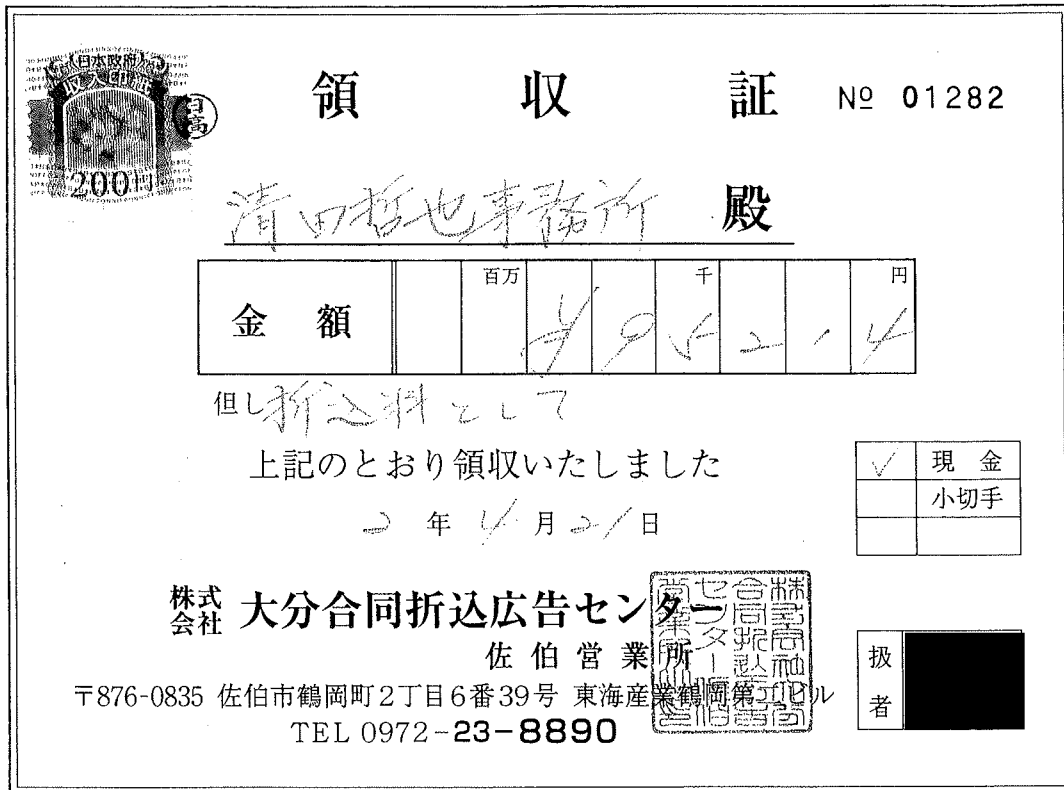 日本政府
収入印紙
200円
日高
領収証 № 01282
清田哲也事務所 殿
百万 千 円
金額 ¥95214
但し折込料として
上記のとおり領収いたしました
✓ 現金
小切手
2年4月21日
株式会社 大分合同折込広告センター
佐伯営業所
〒876-0835 佐伯市鶴岡町2丁目6番39号 東海産業鶴岡第一ビル
TEL 0972-23-8890
扱者